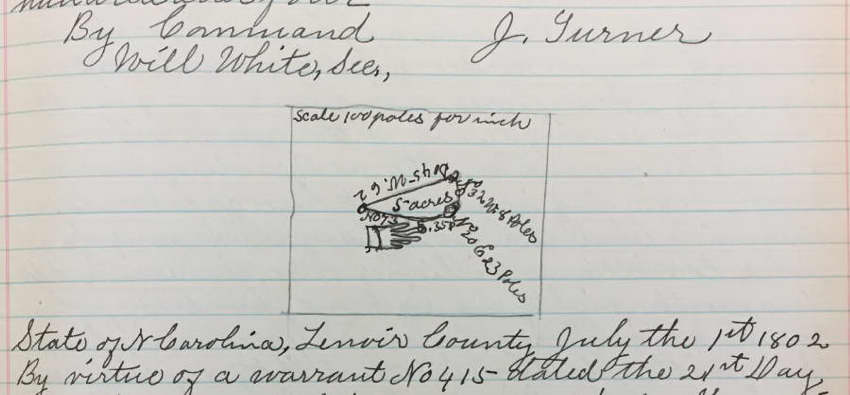 By Command J. Turner
Will White, Sec.,
Scale 100 poles per inch
5 acres
8 Poles
23 Poles
State of N Carolina, Lenoir County July the 1st 1802
By virtue of a warrant No 415 dated the 21st Day